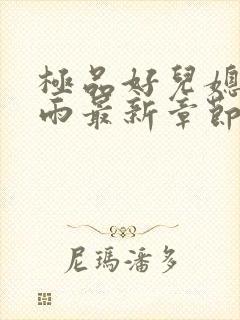 極品好兒媳
雨最新章節
尼瑪潘多